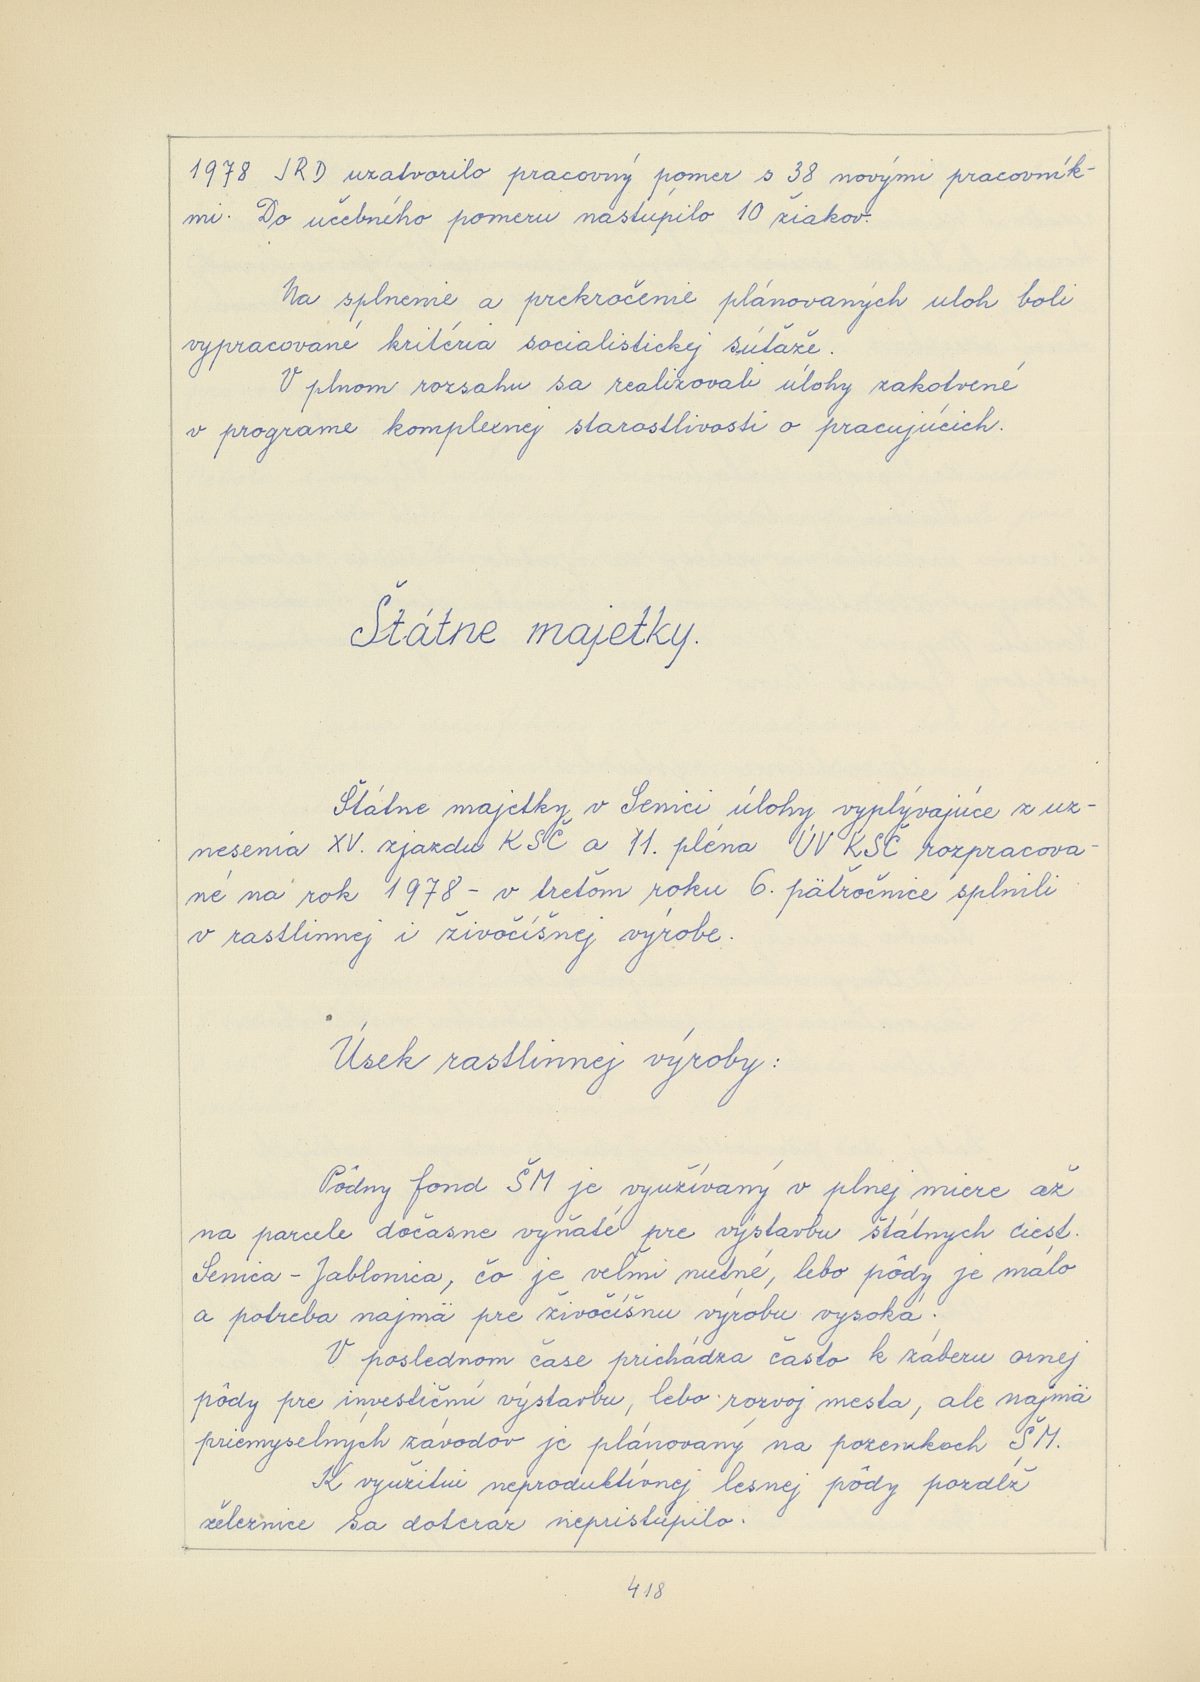 1978 JRD uzatvorilo pracovný pomer s 38 novými pracovník-
mi. Do učebného pomeru nastúpilo 10 žiakov.
Na splnenie a prekročenie plánovaných uloh boli
vypracované kritéria socialistickej súťaže.
V plnom rozsahu sa realizovali úlohy zakotvené
v programe komplexnej starostlivosti o pracujúcich.
Štátne majetky.
Štátne majetky v Senici úlohy vyplývajúce z uz-
nesenia XV. zjazdu KSČ a 11. pléna ÚV KSČ rozpracova-
né na rok 1978 - v treťom roku 6. päťročnice splnili
v rastlinnej i živočíšnej výrobe.
Úsek rastlinnej výroby:
Pôdny fond ŠM je využívaný v plnej miere až
na parcele dočasne vyňaté pre výstavbu štátnych ciest.
Senica - Jablonica, čo je veľmi nutné, lebo pôdy je málo
a potreba najmä pre živočíšnu výrobu vysoká.
V poslednom čase prichádza často k záberu ornej
pôdy pre investičnú výstavbu, lebo rozvoj mesta, ale najmä
priemyselných závodov je plánovaný na pozemkoch ŠM.
K využitiu neproduktívnej lesnej pôdy pozdĺž
železnice sa doteraz nepristúpilo.
418